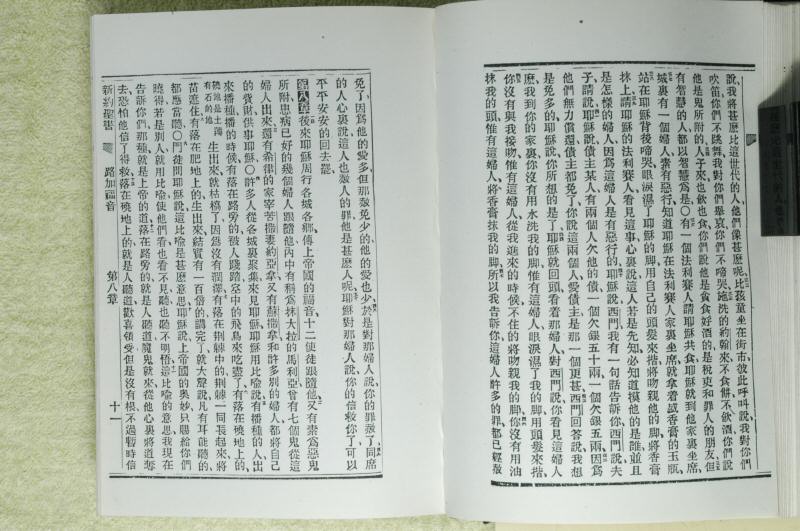 說我將甚麽比這世代的人他們像甚麽呢比孩童坐在街市彼此呼叫說我對你們
吹笛你們不跳舞我對你們舉哀你們不啼哭施洗的約翰來不食餠不飲酒你們說
他是鬼所附的人子來也飲也食你們說他是貪食好酒的是稅吏和罪人的朋友但
有智慧的人都以智慧爲是〇有一個法利賽人請耶穌共食耶穌就到他家裏坐席
城裏有一個婦人素有惡行知道耶穌在法利賽人家裏坐席就拿着盛香膏的玉瓶
站在耶穌背後啼哭眼淚濕了耶穌的脚用自己的頭髮來揩將吻親他的脚將香膏
抹上請耶穌的法利賽人看見這事心裏說這人若是先知必知道摸他的是誰並且
是怎樣的婦人因爲這婦人是有惡行的耶穌說西門我有一句話告訴你西門說夫
子請說耶穌說債主某人有兩個人欠他的債一個欠銀五十兩一個欠銀五兩因爲
他們無力償還債主都免了你說這兩個人愛債主是那一個更甚西門回答說我想
是免多的耶穌說你所想的是了耶穌就回頭看着那婦人對西門說你看見這婦人
麽我到你的家裏你沒有用水洗我的脚惟有這婦人眼淚濕了我的脚用頭髮來揩
你沒有與我接吻惟有這婦人從我進來的時候不住的將吻親我的脚你沒有用油
抹我的頭惟有這婦人將香膏抹我的脚所以我告訴你這婦人許多的罪都已經赦
免了因爲他的愛多但那赦免少的他的愛也少於是對那婦人說你的罪赦了同席
的人心裏說這人也赦人的罪他是甚麽人呢耶穌對那婦人說你的信救你了可以
平平安安的回去罷
第八章 後來耶穌周行各城各鄉傳上帝國的福音十二使徒跟隨他又有素爲惡鬼
所附患病已好的幾個婦人跟隨他內中有稱爲抹大拉的馬利亞曾有七個鬼從這
婦人出來還有希律的家宰苦撒妻約亞拿又有蘇撒拿和許多別的婦人都將自己
的貲財供事耶穌〇許多人從各城裏聚集來見耶穌耶穌用比喻說有播種的人出
來播種播的時候有落在路旁的被人踐踏空中的飛鳥來吃盡了有落在磽地上的
磽地是土薄有石的地 生出來就枯槁了因爲沒有潤澤有落在荆棘中的荆棘一同長起來將
苗遮住有落在肥地上的生出來結實有一百倍的講完了就大聲說凡有耳能聽的
都應當聽〇門徒問耶穌說這比喻是甚麽意思耶穌說上帝國的奧妙只賜給你們
曉得若是別人就用比喻使他們看也看不見聽也聽不明悟這比喻的意思我現在
告訴你們那種就是上帝的道落在路旁的就是人聽道魔鬼就來從他心裏將道奪
去恐怕他信了得救落在磽地上的就是人聽道歡喜領受但是沒有根不過暫時信
新約聖書 路加福音 第八章 十一